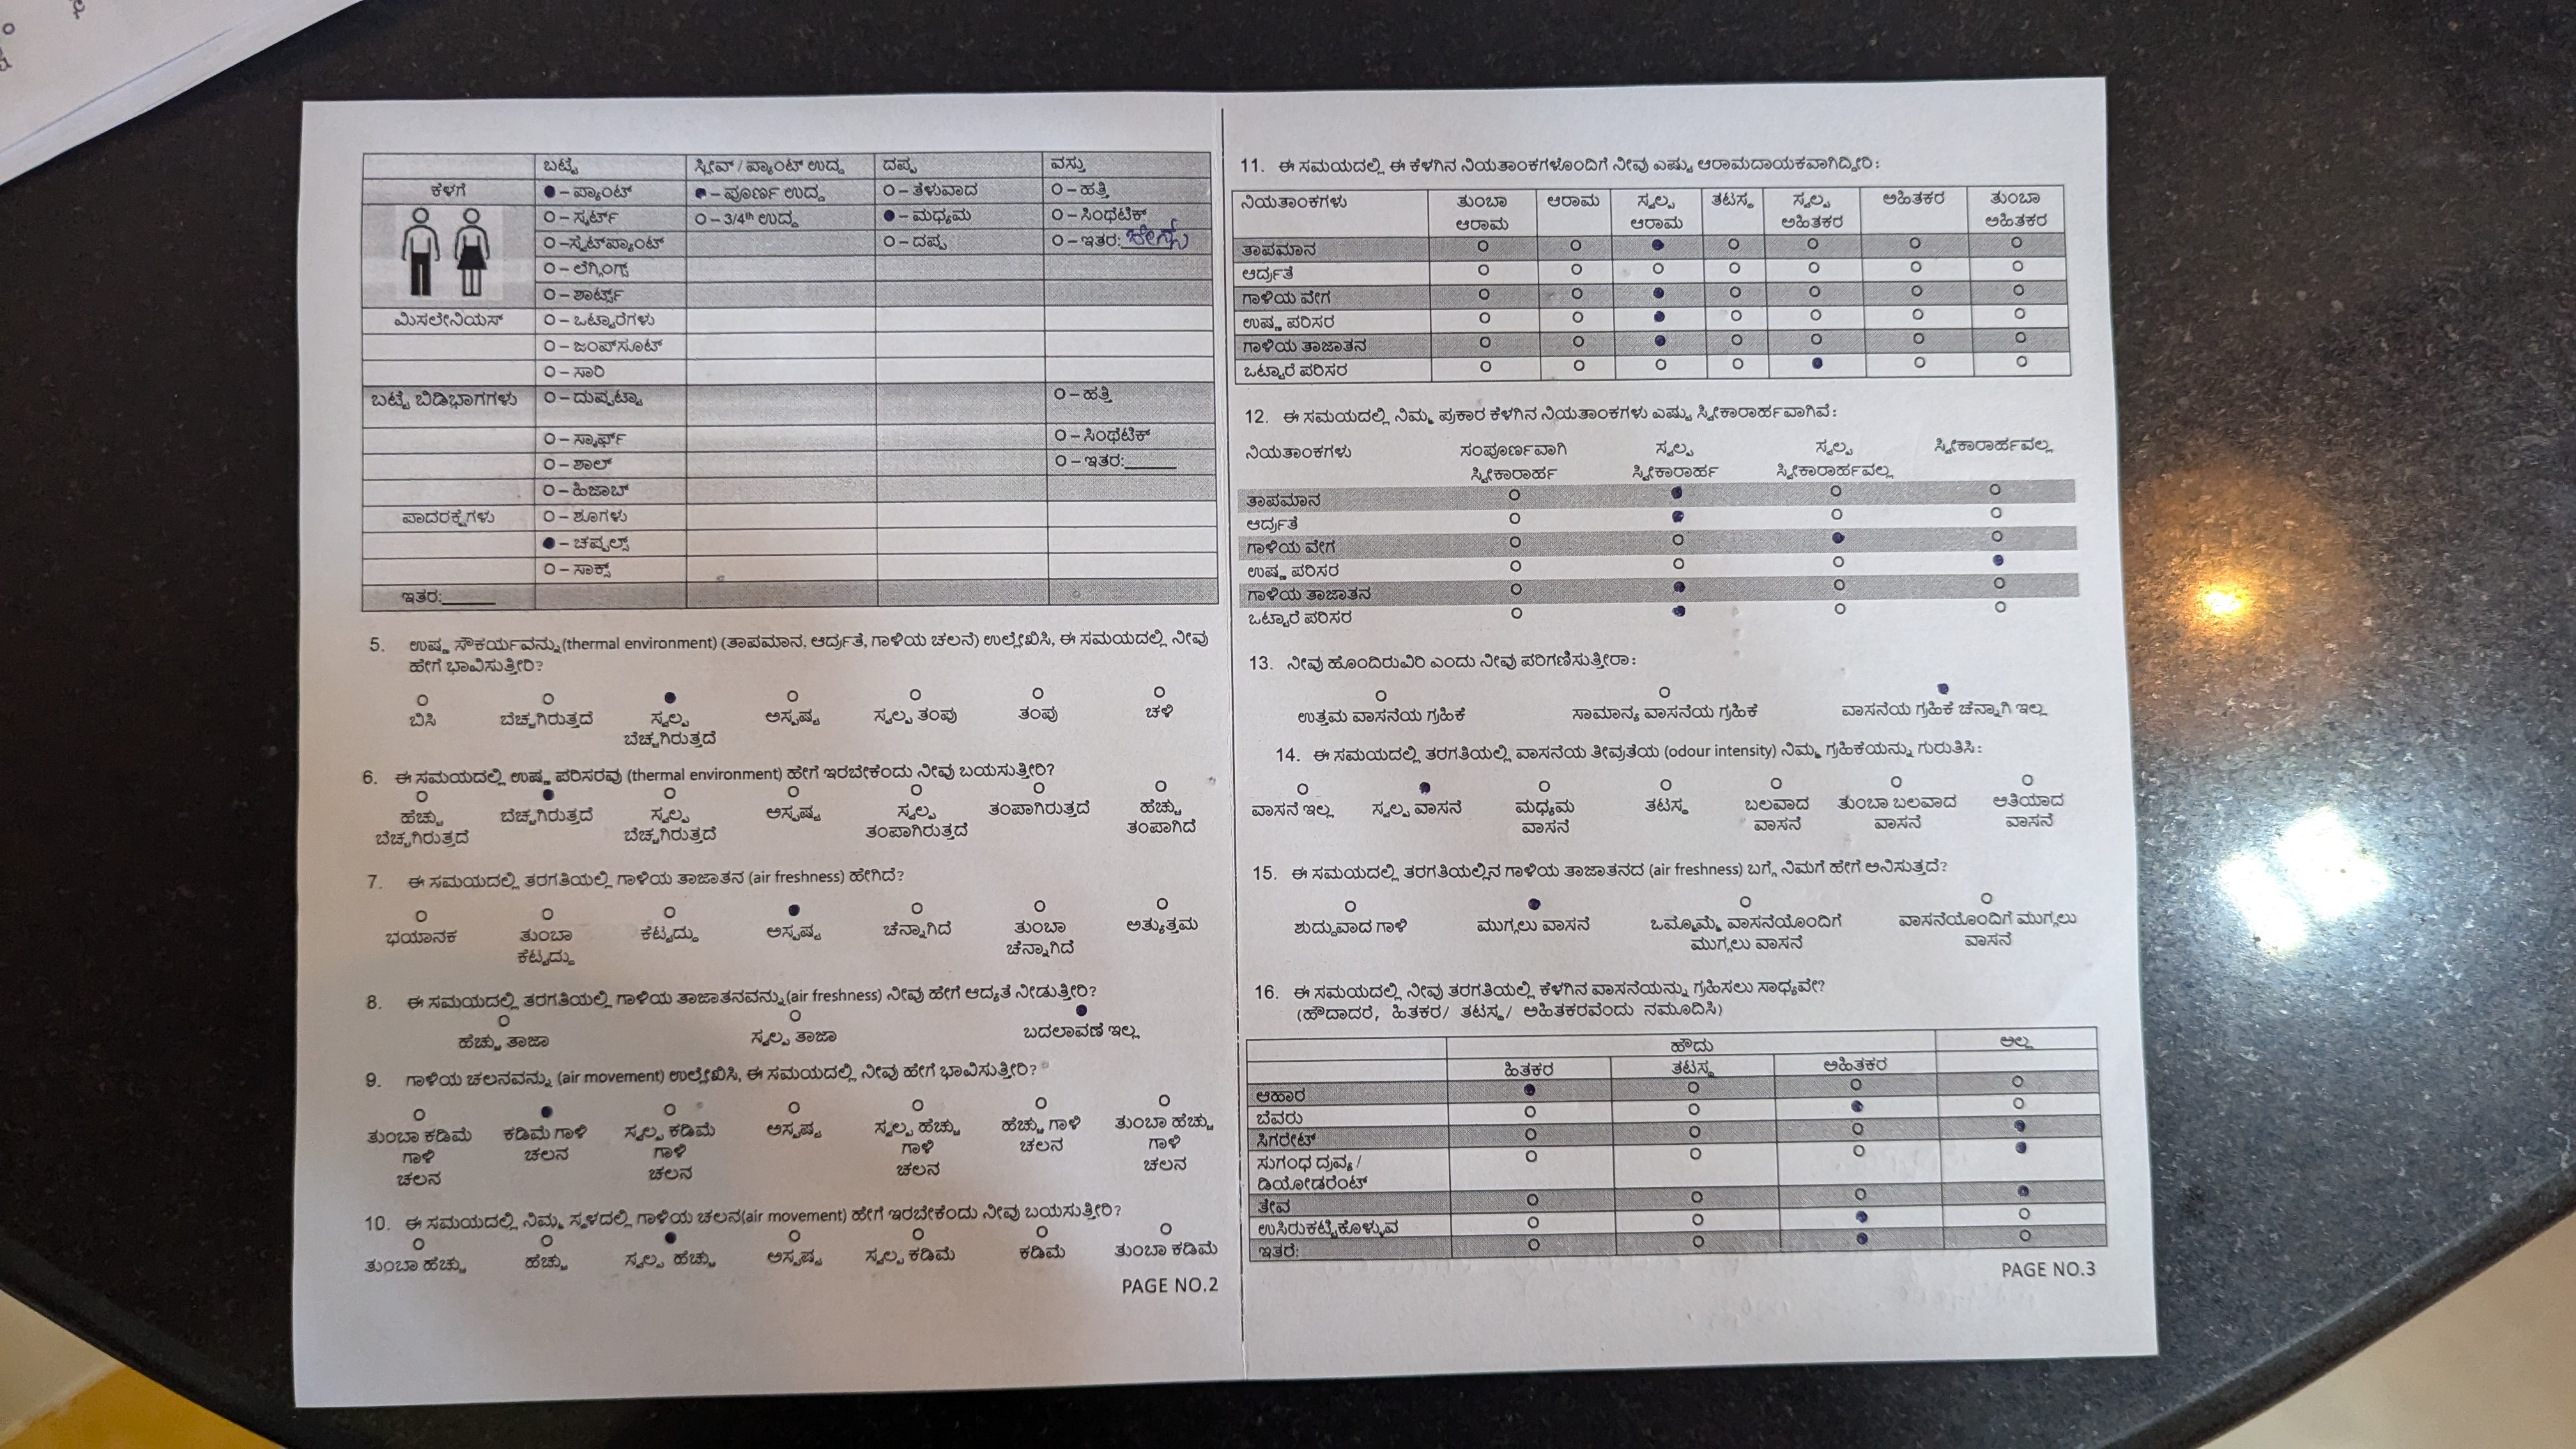 ಬಟ್ಟೆ ಸ್ಲೀವ್ / ಪ್ಯಾಂಟ್ ಉದ್ದ ದಪ್ಪ ವಸ್ತು
ಕೆಳಗೆ ●–ಪ್ಯಾಂಟ್ ●–ಪೂರ್ಣ ಉದ್ದ O–ತೆಳುವಾದ O–ಹತ್ತಿ
O–ಸ್ಕರ್ಟ್ O–3/4th ಉದ್ದ ●–ಮಧ್ಯಮ O–ಸಿಂಥೆಟಿಕ್
O–ಸ್ವೆಟ್‌ಪ್ಯಾಂಟ್ O–ದಪ್ಪ O–ಇತರ:
O–ಲೆಗ್ಗಿಂಗ್ಸ್
O–ಶಾರ್ಟ್ಸ್
ಮಿಸಲೇನಿಯಸ್ O–ಒಟ್ಟಾರೆಗಳು
O–ಜಂಪ್‌ಸೂಟ್
O–ಸಾರಿ
ಬಟ್ಟೆ ಬಿಡಿಭಾಗಗಳು O–ದುಪ್ಪಟ್ಟಾ O–ಹತ್ತಿ
O–ಸ್ಕಾರ್ಫ್ O–ಸಿಂಥೆಟಿಕ್
O–ಶಾಲ್ O–ಇತರ:______
O–ಹಿಜಾಬ್
ಪಾದರಕ್ಷೆಗಳು O–ಶೂಗಳು
●–ಚಪ್ಪಲ್ಸ್
O–ಸಾಕ್ಸ್
ಇತರ:______
5. ಉಷ್ಣ ಸೌಕರ್ಯವನ್ನು(thermal environment) (ತಾಪಮಾನ, ಆರ್ದ್ರತೆ, ಗಾಳಿಯ ಚಲನೆ) ಉಲ್ಲೇಖಿಸಿ, ಈ ಸಮಯದಲ್ಲಿ ನೀವು
ಹೇಗೆ ಭಾವಿಸುತ್ತೀರಿ?
O O ● O O O O
ಬಿಸಿ ಬೆಚ್ಚಗಿರುತ್ತದೆ ಸ್ವಲ್ಪ ಅಸ್ಪಷ್ಟ ಸ್ವಲ್ಪ ತಂಪು ತಂಪು ಚಳಿ
ಬೆಚ್ಚಗಿರುತ್ತದೆ
6. ಈ ಸಮಯದಲ್ಲಿ ಉಷ್ಣ ಪರಿಸರವು (thermal environment) ಹೇಗೆ ಇರಬೇಕೆಂದು ನೀವು ಬಯಸುತ್ತೀರಿ?
O ● O O O O O
ಹೆಚ್ಚು ಬೆಚ್ಚಗಿರುತ್ತದೆ ಸ್ವಲ್ಪ ಅಸ್ಪಷ್ಟ ಸ್ವಲ್ಪ ತಂಪಾಗಿರುತ್ತದೆ ಹೆಚ್ಚು
ಬೆಚ್ಚಗಿರುತ್ತದೆ ಬೆಚ್ಚಗಿರುತ್ತದೆ ತಂಪಾಗಿರುತ್ತದೆ ತಂಪಾಗಿದೆ
7. ಈ ಸಮಯದಲ್ಲಿ ತರಗತಿಯಲ್ಲಿ ಗಾಳಿಯ ತಾಜಾತನ (air freshness) ಹೇಗಿದೆ?
O O O ● O O O
ಭಯಾನಕ ತುಂಬಾ ಕೆಟ್ಟದ್ದು ಅಸ್ಪಷ್ಟ ಚೆನ್ನಾಗಿದೆ ತುಂಬಾ ಅತ್ಯುತ್ತಮ
ಕೆಟ್ಟದ್ದು ಚೆನ್ನಾಗಿದೆ
8. ಈ ಸಮಯದಲ್ಲಿ ತರಗತಿಯಲ್ಲಿ ಗಾಳಿಯ ತಾಜಾತನವನ್ನು(air freshness) ನೀವು ಹೇಗೆ ಆದ್ಯತೆ ನೀಡುತ್ತೀರಿ?
O O ●
ಹೆಚ್ಚು ತಾಜಾ ಸ್ವಲ್ಪ ತಾಜಾ ಬದಲಾವಣೆ ಇಲ್ಲ
9. ಗಾಳಿಯ ಚಲನವನ್ನು (air movement) ಉಲ್ಲೇಖಿಸಿ, ಈ ಸಮಯದಲ್ಲಿ ನೀವು ಹೇಗೆ ಭಾವಿಸುತ್ತೀರಿ?
O ● O O O O O
ತುಂಬಾ ಕಡಿಮೆ ಕಡಿಮೆ ಗಾಳಿ ಸ್ವಲ್ಪ ಕಡಿಮೆ ಅಸ್ಪಷ್ಟ ಸ್ವಲ್ಪ ಹೆಚ್ಚು ಹೆಚ್ಚು ಗಾಳಿ ತುಂಬಾ ಹೆಚ್ಚು
ಗಾಳಿ ಚಲನ ಗಾಳಿ ಗಾಳಿ ಚಲನ ಗಾಳಿ
ಚಲನ ಚಲನ ಚಲನ ಚಲನ
10. ಈ ಸಮಯದಲ್ಲಿ ನಿಮ್ಮ ಸ್ಥಳದಲ್ಲಿ ಗಾಳಿಯ ಚಲನ(air movement) ಹೇಗೆ ಇರಬೇಕೆಂದು ನೀವು ಬಯಸುತ್ತೀರಿ?
O O ● O O O O
ತುಂಬಾ ಹೆಚ್ಚು ಹೆಚ್ಚು ಸ್ವಲ್ಪ ಹೆಚ್ಚು ಅಸ್ಪಷ್ಟ ಸ್ವಲ್ಪ ಕಡಿಮೆ ಕಡಿಮೆ ತುಂಬಾ ಕಡಿಮೆ
PAGE NO.2
11. ಈ ಸಮಯದಲ್ಲಿ ಈ ಕೆಳಗಿನ ನಿಯತಾಂಕಗಳೊಂದಿಗೆ ನೀವು ಎಷ್ಟು ಆರಾಮದಾಯಕವಾಗಿದ್ದೀರಿ:
ನಿಯತಾಂಕಗಳು ತುಂಬಾ ಆರಾಮ ಸ್ವಲ್ಪ ತಟಸ್ಥ ಸ್ವಲ್ಪ ಅಹಿತಕರ ತುಂಬಾ
ಆರಾಮ ಆರಾಮ ಅಹಿತಕರ ಅಹಿತಕರ
ತಾಪಮಾನ O O ● O O O O
ಆರ್ದ್ರತೆ O O O O O O O
ಗಾಳಿಯ ವೇಗ O O ● O O O O
ಉಷ್ಣ ಪರಿಸರ O O ● O O O O
ಗಾಳಿಯ ತಾಜಾತನ O O ● O O O O
ಒಟ್ಟಾರೆ ಪರಿಸರ O O O O ● O O
12. ಈ ಸಮಯದಲ್ಲಿ ನಿಮ್ಮ ಪ್ರಕಾರ ಕೆಳಗಿನ ನಿಯತಾಂಕಗಳು ಎಷ್ಟು ಸ್ವೀಕಾರಾರ್ಹವಾಗಿವೆ:
ನಿಯತಾಂಕಗಳು ಸಂಪೂರ್ಣವಾಗಿ ಸ್ವಲ್ಪ ಸ್ವಲ್ಪ ಸ್ವೀಕಾರಾರ್ಹವಲ್ಲ
ಸ್ವೀಕಾರಾರ್ಹ ಸ್ವೀಕಾರಾರ್ಹ ಸ್ವೀಕಾರಾರ್ಹವಲ್ಲ
ತಾಪಮಾನ O ● O O
ಆರ್ದ್ರತೆ O ● O O
ಗಾಳಿಯ ವೇಗ O O ● O
ಉಷ್ಣ ಪರಿಸರ O O O ●
ಗಾಳಿಯ ತಾಜಾತನ O ● O O
ಒಟ್ಟಾರೆ ಪರಿಸರ O ● O O
13. ನೀವು ಹೊಂದಿರುವಿರಿ ಎಂದು ನೀವು ಪರಿಗಣಿಸುತ್ತೀರಾ:
O O ●
ಉತ್ತಮ ವಾಸನೆಯ ಗ್ರಹಿಕೆ ಸಾಮಾನ್ಯ ವಾಸನೆಯ ಗ್ರಹಿಕೆ ವಾಸನೆಯ ಗ್ರಹಿಕೆ ಚೆನ್ನಾಗಿ ಇಲ್ಲ
14. ಈ ಸಮಯದಲ್ಲಿ ತರಗತಿಯಲ್ಲಿ ವಾಸನೆಯ ತೀವ್ರತೆಯ (odour intensity) ನಿಮ್ಮ ಗ್ರಹಿಕೆಯನ್ನು ಗುರುತಿಸಿ:
O ● O O O O O
ವಾಸನೆ ಇಲ್ಲ ಸ್ವಲ್ಪ ವಾಸನೆ ಮಧ್ಯಮ ತಟಸ್ಥ ಬಲವಾದ ತುಂಬಾ ಬಲವಾದ ಅತಿಯಾದ
ವಾಸನೆ ವಾಸನೆ ವಾಸನೆ ವಾಸನೆ
15. ಈ ಸಮಯದಲ್ಲಿ ತರಗತಿಯಲ್ಲಿನ ಗಾಳಿಯ ತಾಜಾತನದ (air freshness) ಬಗ್ಗೆ ನಿಮಗೆ ಹೇಗೆ ಅನಿಸುತ್ತದೆ?
O ● O O
ಶುದ್ಧವಾದ ಗಾಳಿ ಮುಗ್ಗಲು ವಾಸನೆ ಒಮ್ಮೊಮ್ಮೆ ವಾಸನೆಯೊಂದಿಗೆ ವಾಸನೆಯೊಂದಿಗೆ ಮುಗ್ಗಲು
ಮುಗ್ಗಲು ವಾಸನೆ ವಾಸನೆ
16. ಈ ಸಮಯದಲ್ಲಿ ನೀವು ತರಗತಿಯಲ್ಲಿ ಕೆಳಗಿನ ವಾಸನೆಯನ್ನು ಗ್ರಹಿಸಲು ಸಾಧ್ಯವೇ?
(ಹೌದಾದರೆ, ಹಿತಕರ/ ತಟಸ್ಥ/ ಅಹಿತಕರವೆಂದು ನಮೂದಿಸಿ)
ಹೌದು ಅಲ್ಲ
ಹಿತಕರ ತಟಸ್ಥ ಅಹಿತಕರ
ಆಹಾರ ● O O O
ಬೆವರು O O ● O
ಸಿಗರೇಟ್ O O O ●
ಸುಗಂಧ ದ್ರವ್ಯ/ O O O ●
ಡಿಯೋಡರೆಂಟ್
ತೇವ O O O ●
ಉಸಿರುಕಟ್ಟಿಕೊಳ್ಳುವ O O ● O
ಇತರೆ: O O ● O
PAGE NO.3